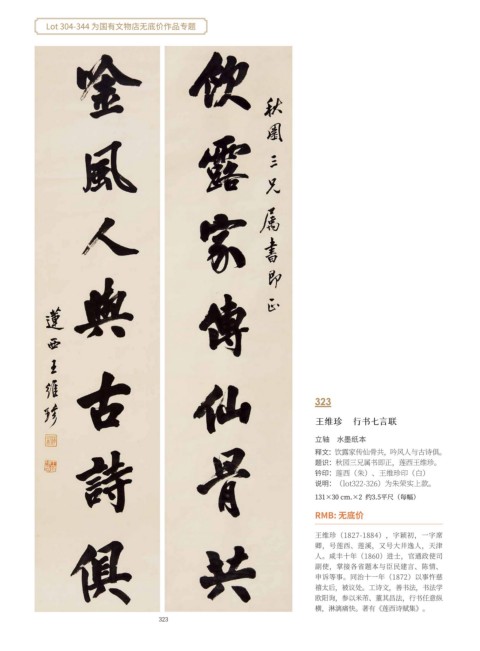 Lot 304-344 为国有文物店无底价作品专题
飲露家傳仙骨共
秋圃三兄属書即正
唫風人與古詩俱
蓮西王維珍
323
王维珍 行书七言联
立轴 水墨纸本
释文：饮露家传仙骨共，吟风人与古诗俱。
题识：秋圃三兄属书即正，莲西王维珍。
钤印：莲西（朱）、王维珍印（白）
说明：（lot322-326）为朱荣实上款。
131×30 cm.×2 约3.5平尺（每幅）
RMB: 无底价
王维珍（1827-1884），字颖初，一字席
卿，号莲西、莲溪，又号大井逸人，天津
人。咸丰十年（1860）进士，官通政使司
副使，掌接各省题本与臣民建言、陈情、
申诉等事。同治十一年（1872）以事忤慈
禧太后，被议处。工诗文，善书法，书法学
欧阳询，参以米芾、董其昌法，行书任意纵
横，淋漓痛快，著有《莲西诗赋集》。
323